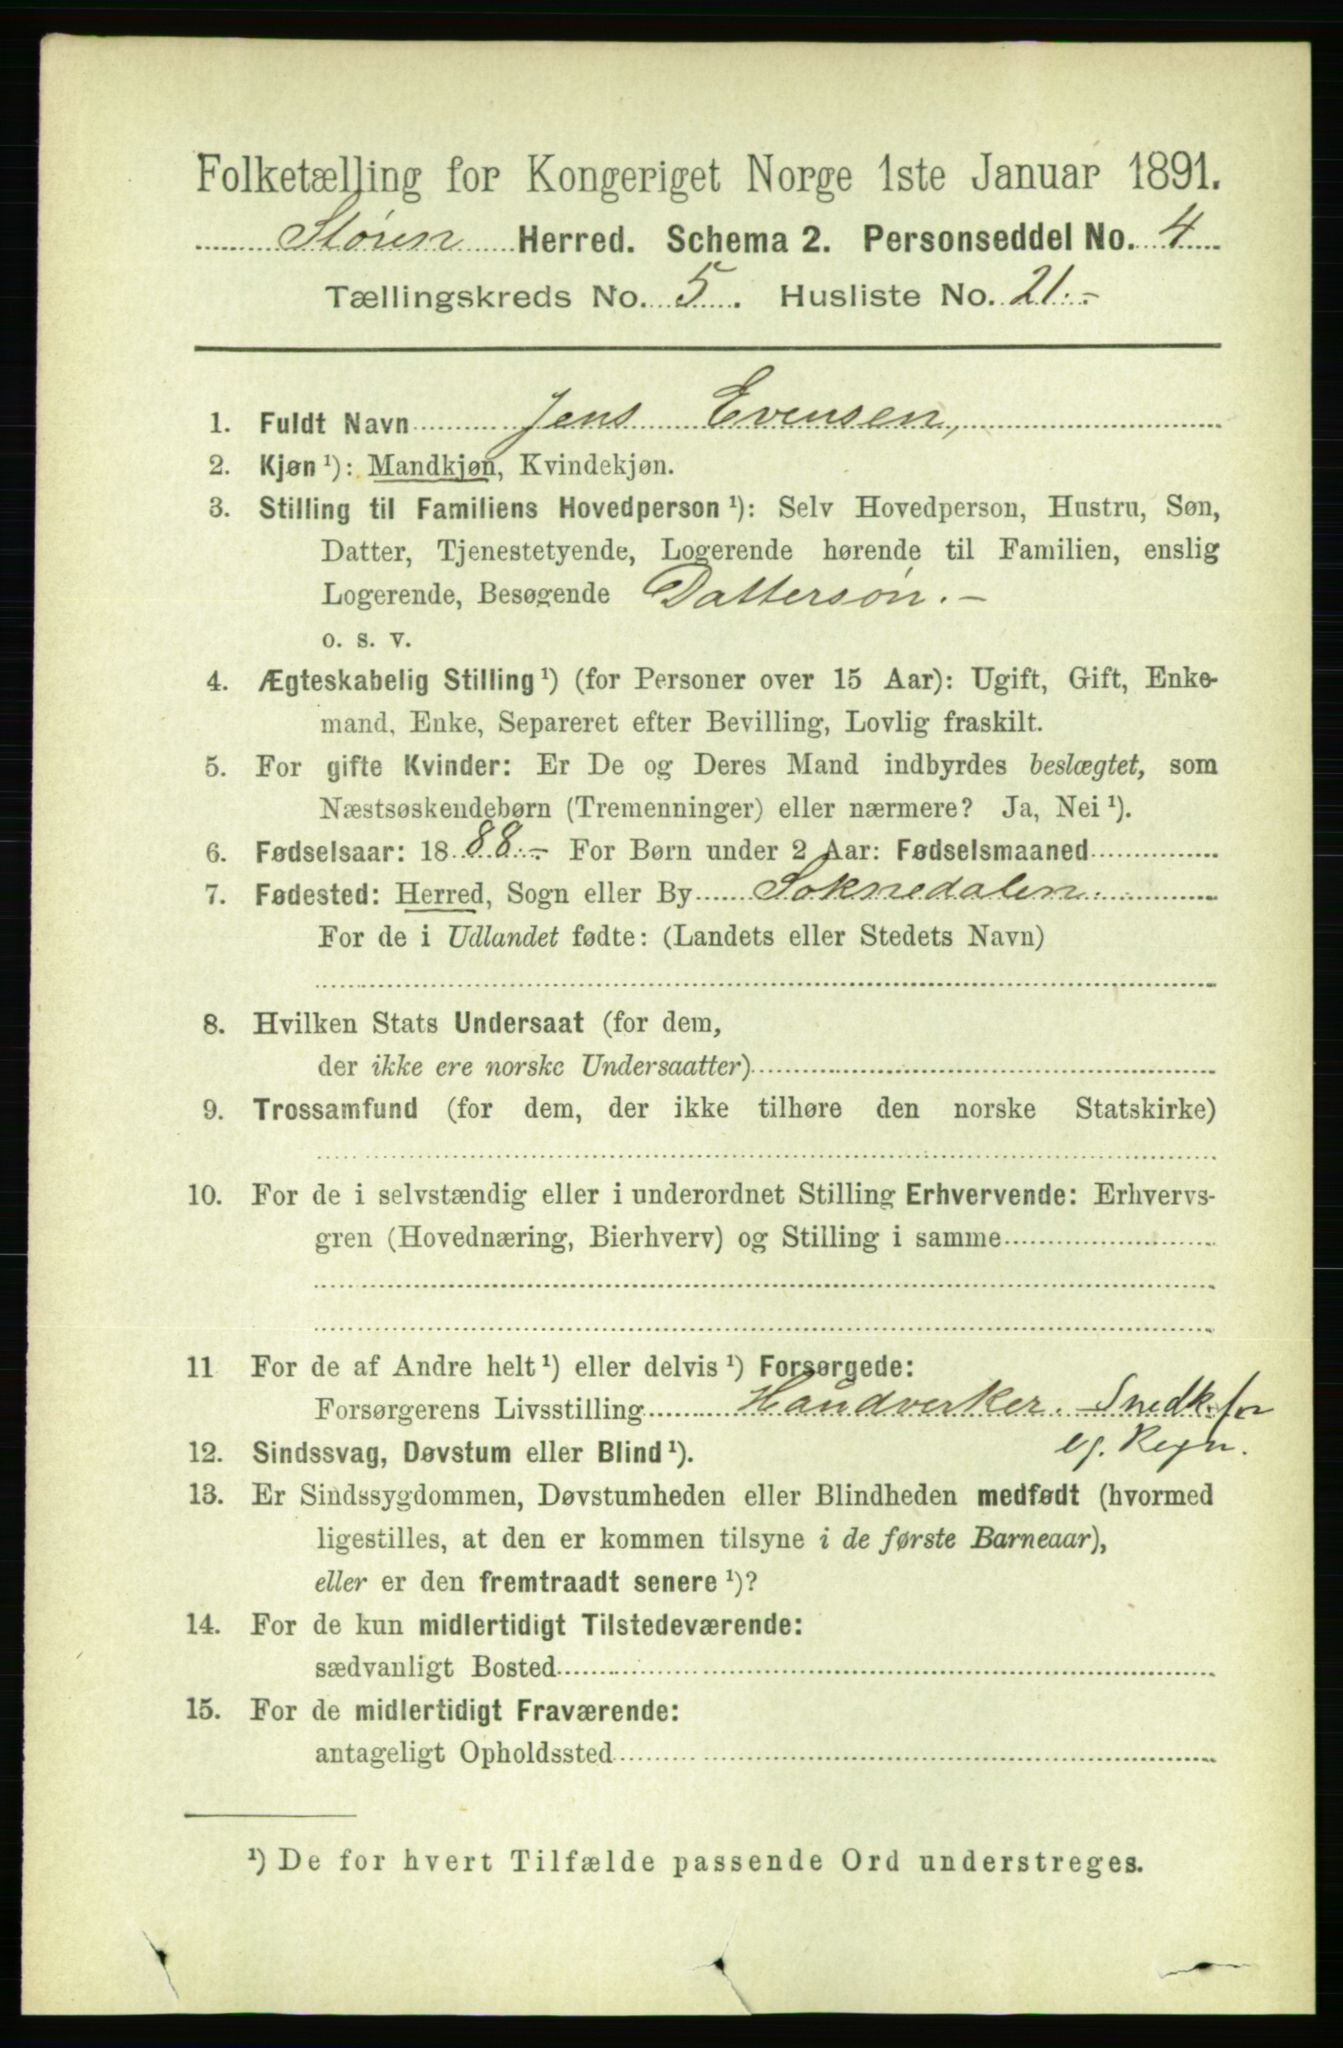 Folketælling for Kongeriget Norge 1ste Januar 1891.
Støren Herred. Schema 2. Personseddel No. 4
Tællingskreds No. 5. Husliste No. 21.-
1. Fuldt Navn Jens Evensen,
2. Kjøn¹): Mandkjøn, Kvindekjøn.
3. Stilling til Familiens Hovedperson¹): Selv Hovedperson, Hustru, Søn,
Datter, Tjenestetyende, Logerende hørende til Familien, enslig
Logerende, Besøgende Dattersøn.-
o. s. v.
4. Ægteskabelig Stilling¹) (for Personer over 15 Aar): Ugift, Gift, Enke-
mand, Enke, Separeret efter Bevilling, Lovlig fraskilt.
5. For gifte Kvinder: Er De og Deres Mand indbyrdes beslægtet, som
Næstsøskendebørn (Tremenninger) eller nærmere? Ja, Nei¹).
6. Fødselsaar: 1888.- For Børn under 2 Aar: Fødselsmaaned
7. Fødested: Herred, Sogn eller By Soknedalen.
For de i Udlandet fødte: (Landets eller Stedets Navn)
8. Hvilken Stats Undersaat (for dem,
der ikke ere norske Undersaatter)
9. Trossamfund (for dem, der ikke tilhøre den norske Statskirke)
10. For de i selvstændig eller i underordnet Stilling Erhvervende: Erhvervs-
gren (Hovednæring, Bierhverv) og Stilling i samme
11 For de af Andre helt¹) eller delvis¹) Forsørgede:
Forsørgerens Livsstilling Haandverker. Snedk. for
eg. Regn.
12. Sindssvag, Døvstum eller Blind¹).
13. Er Sindssygdommen, Døvstumheden eller Blindheden medfødt (hvormed
ligestilles, at den er kommen tilsyne i de første Barneaar),
eller er den fremtraadt senere¹)?
14. For de kun midlertidigt Tilstedeværende:
sædvanligt Bosted
15. For de midlertidigt Fraværende:
antageligt Opholdssted
¹) De for hvert Tilfælde passende Ord understreges.